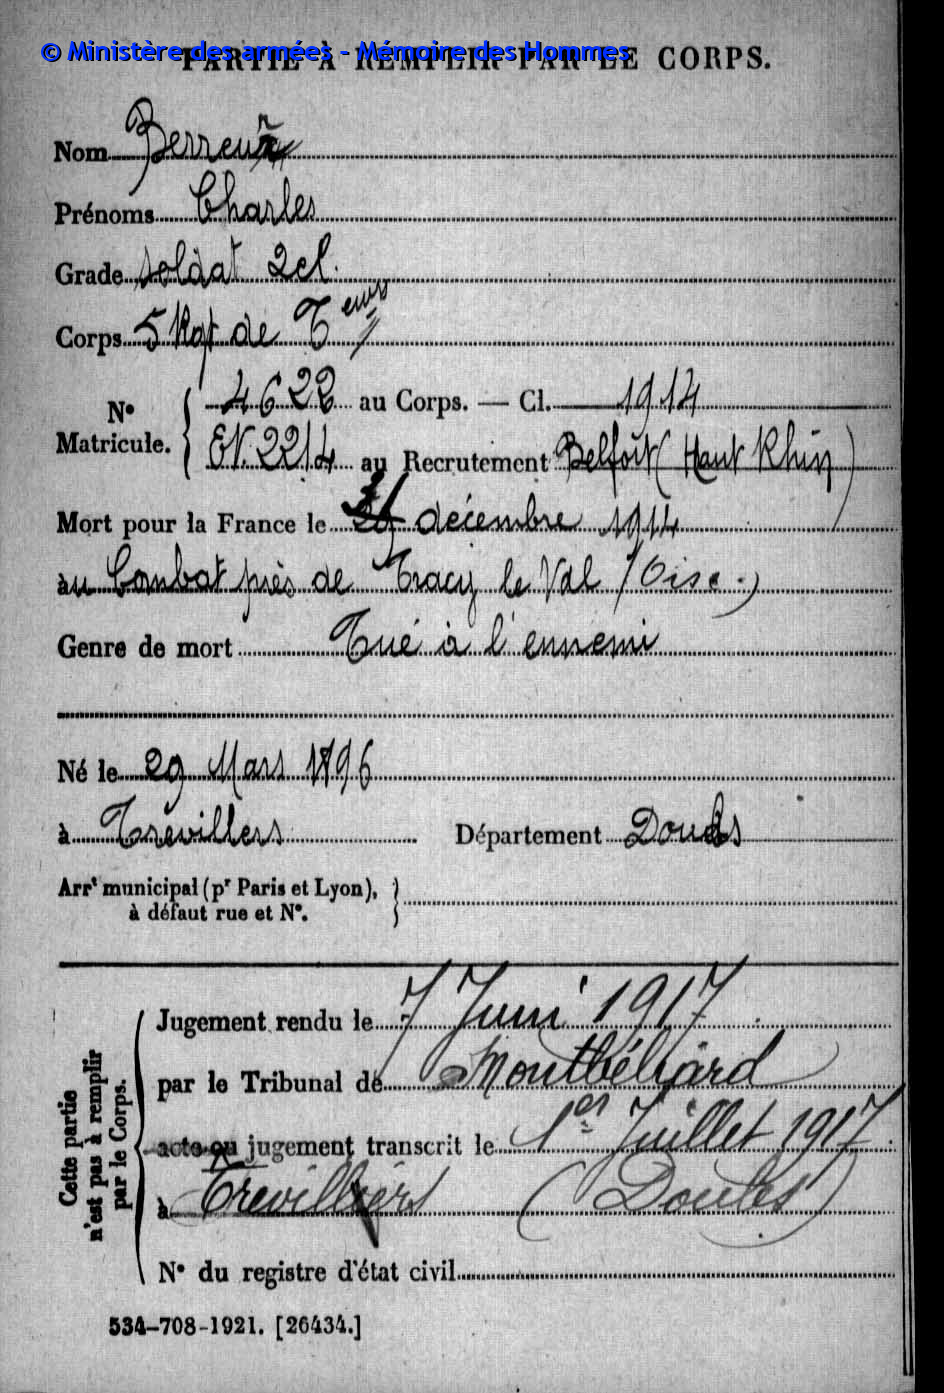 © Ministère des armées - Mémoire des Hommes
PARTIE À REMPLIR PAR LE CORPS.
Nom Berreur
Prénoms Charles
Grade soldat 2cl.
Corps 5 Rgt de Teurs
N° Matricule. { 4622 au Corps. — Cl. 1914
EV. 2214 au Recrutement Belfort (Haut Rhin)
Mort pour la France le 31 décembre 1914
au Combat près de Tracy le Val (Oise.)
Genre de mort Tué à l'ennemi
Né le 29 Mars 1896
à Trévillers Département Doubs
Arrt municipal (pr Paris et Lyon),
à défaut rue et N°.
Cette partie
n'est pas à remplir
par le Corps.
Jugement rendu le 7 Juin 1917
par le Tribunal de Montbéliard
acte ou jugement transcrit le 1er Juillet 1917
à Trevillers (Doubs)
N° du registre d'état civil
534-708-1921. [26434.]